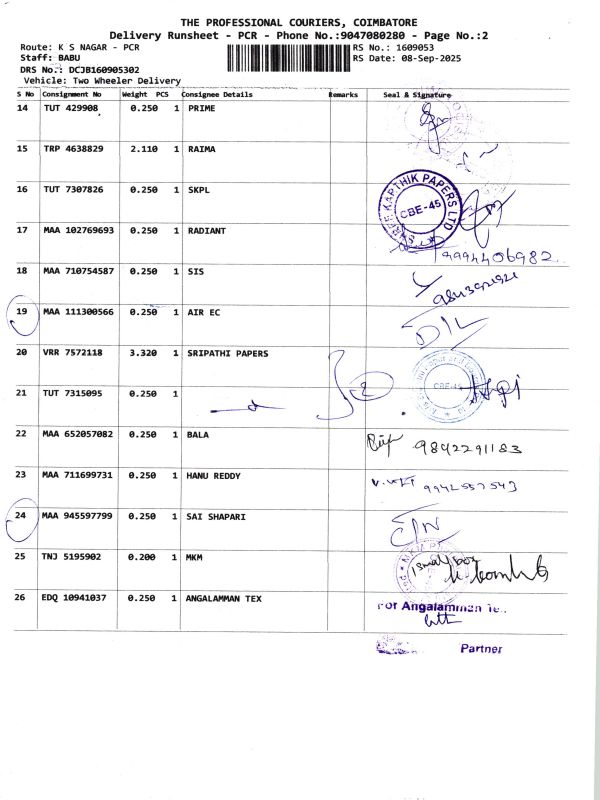 THE PROFESSIONAL COURIERS, COIMBATORE
Delivery Runsheet - PCR - Phone No.:9047080280 - Page No.:2
Route: K S NAGAR - PCR
RS No.: 1609053
Staff: BABU
RS Date: 08-Sep-2025
DRS No.: DCJB160905302
Vehicle: Two Wheeler Delivery
S No Consignment No Weight PCS Consignee Details Remarks Seal & Signature
14 TUT 429908 0.250 1 PRIME
15 TRP 4638829 2.110 1 RAIMA
16 TUT 7307826 0.250 1 SKPL
KARTHIK PAPERS LTD
CBE-45
17 MAA 102769693 0.250 1 RADIANT
9994406982
18 MAA 710754587 0.250 1 SIS
19 MAA 111300566 0.250 1 AIR EC
D/L
20 VRR 7572118 3.320 1 SRIPATHI PAPERS
2
CBE-45
21 TUT 7315095 0.250 1
22 MAA 652057082 0.250 1 BALA
9842291183
23 MAA 711699731 0.250 1 HANU REDDY
9942557543
24 MAA 945597799 0.250 1 SAI SHAPARI
25 TNJ 5195902 0.200 1 MKM
1 small box
26 EDQ 10941037 0.250 1 ANGALAMMAN TEX
For Angalamman
Partner